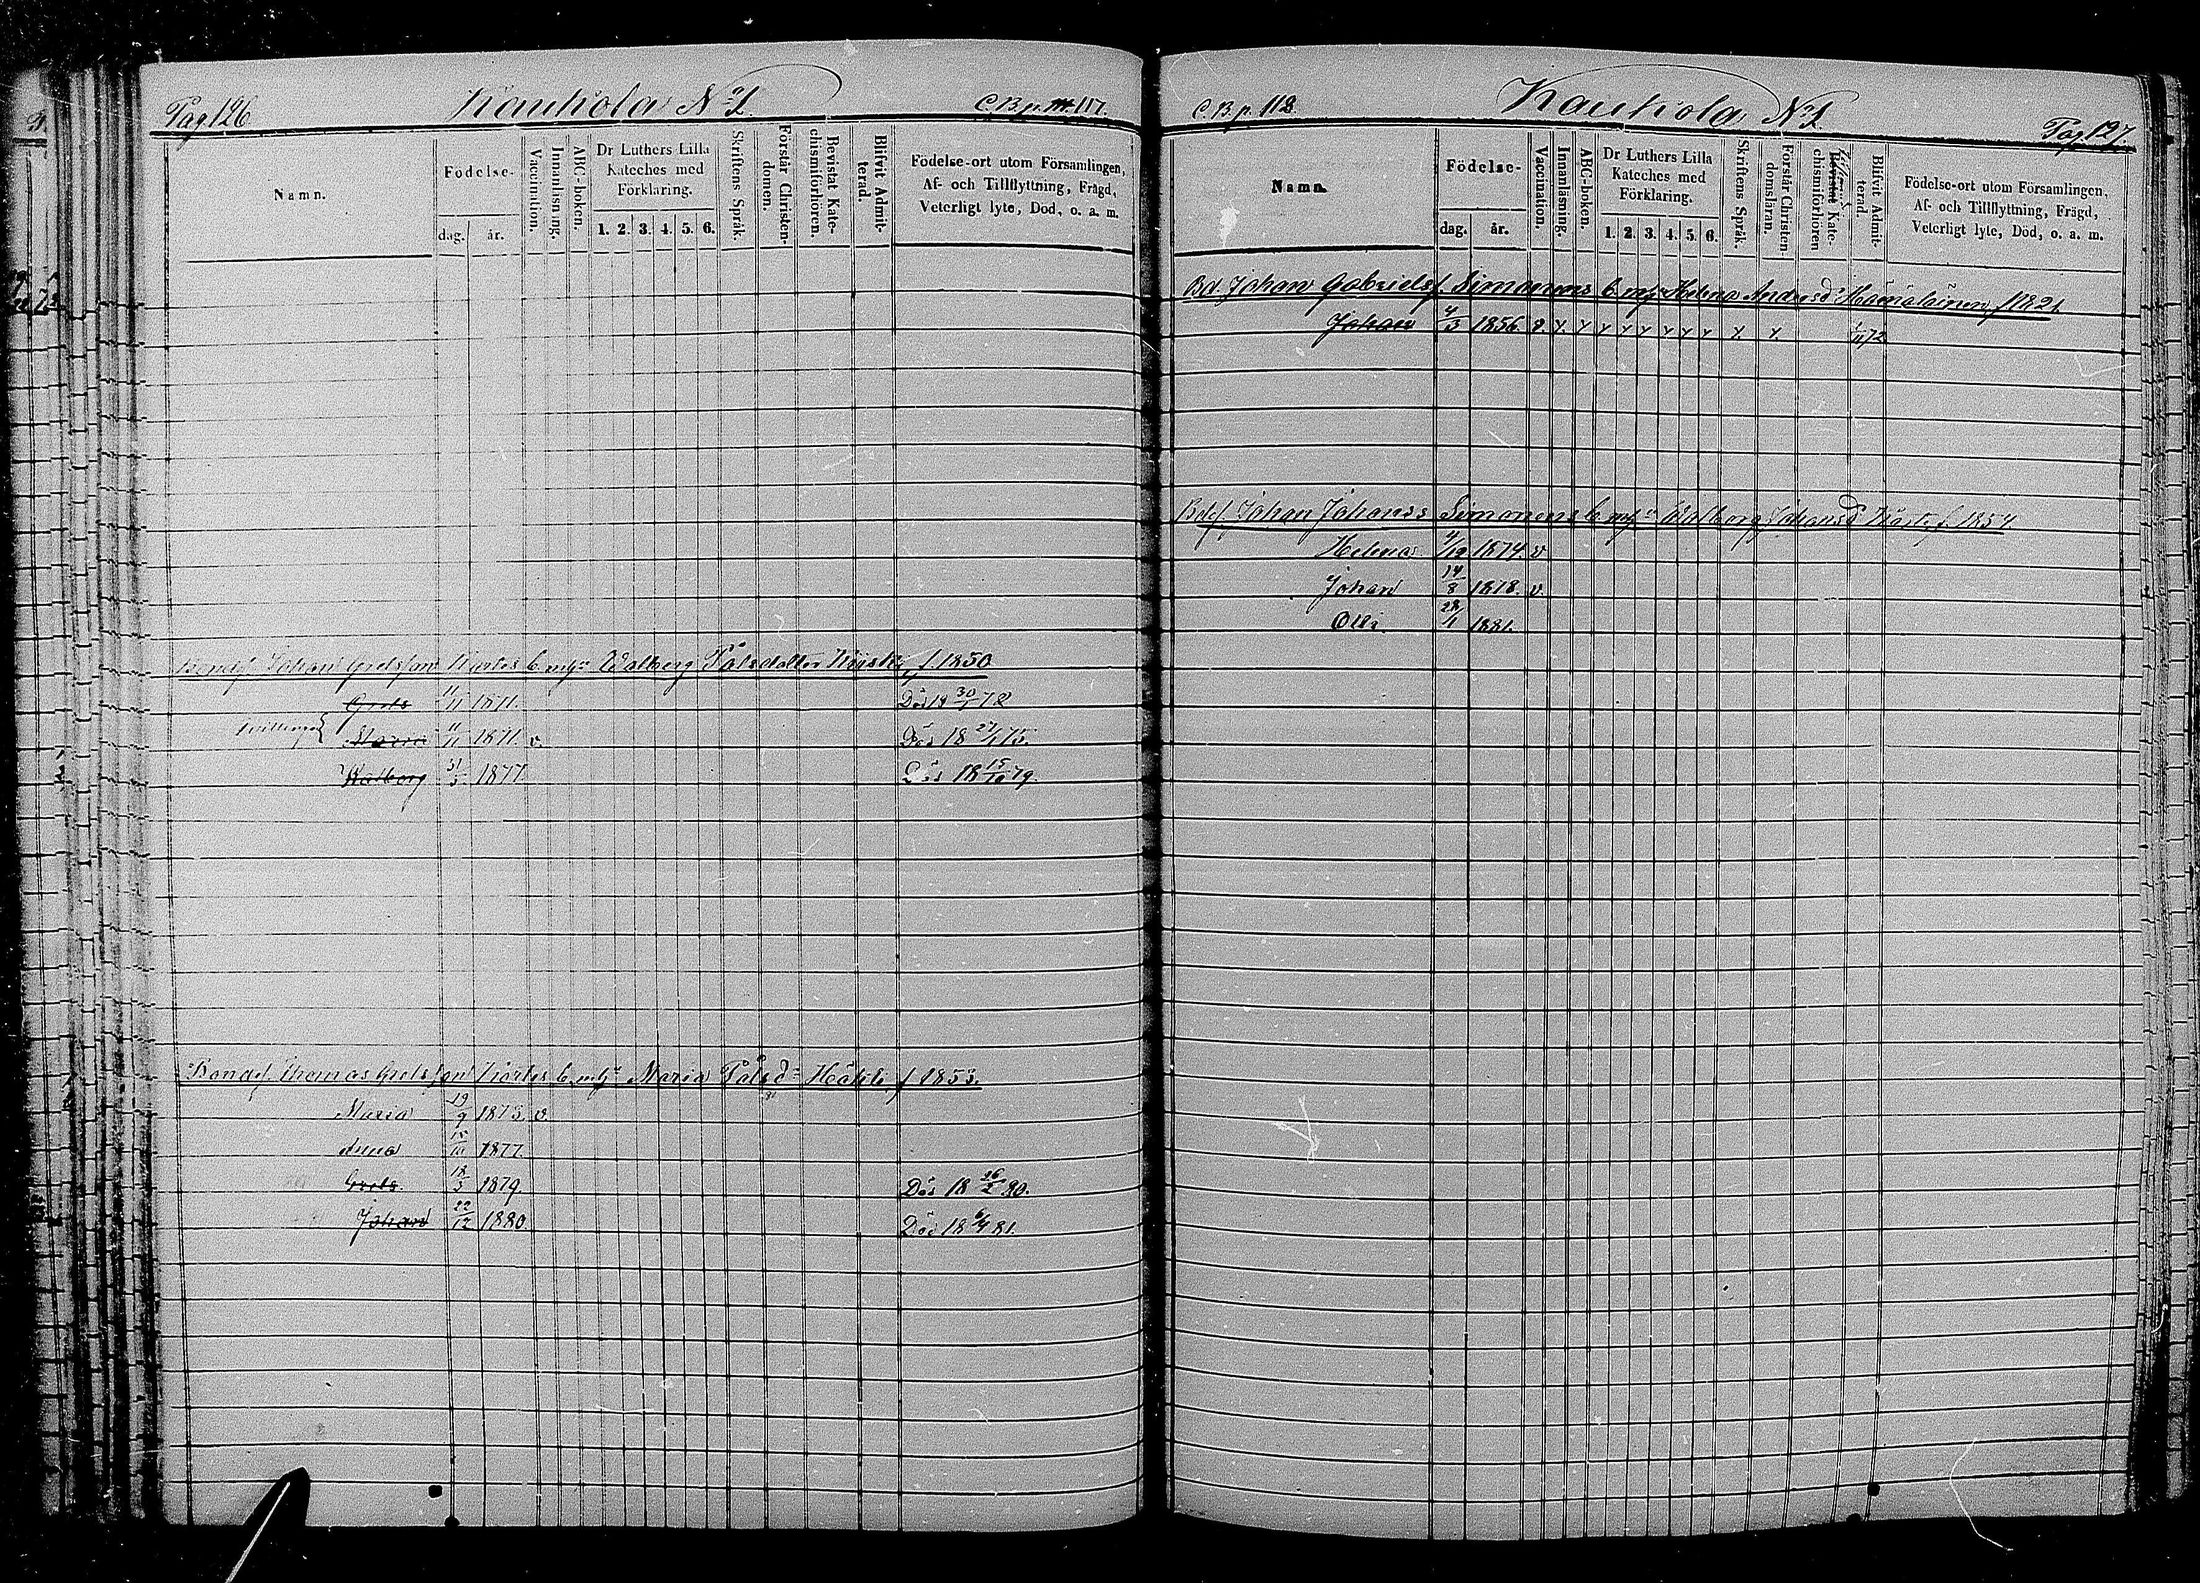 Pag 126
Kauhola N:o 1.
C.B.p. 117.
Namn.
Födelse-
dag.
år.
Vaccination.
Innanläsning.
ABC-boken.
Dr Luthers Lilla
Kateches med
Förklaring.
1. 2. 3. 4. 5. 6.
Skriftens Språk.
Förstår Christen-
domen.
Bevistat Kate-
chismiförhören.
Blifvit Admit-
terad.
Födelse-ort utom Församlingen,
Af- och Tillflyttning, Frägd,
Veterligt lyte, Död, o. a. m.
Johan Grelsson Walborg Pålsdotter f. 1850
Grels 11/11 1871. Död 18 30/1 72
tvillingar
Maria 11/11 1871. v. Död 18 75.
Walborg 31/3 1877. Död 18 15/10 79.
Thomas Grelsson Maria Pålsd:r f 1853.
Maria 19/9 1873. v
Anna 15/10 1877.
Grels 18/3 1879. Död 18 26/2 80.
Johan 22/12 1880. Död 18 6/4 81.
C.B.p. 118.
Kauhola N:o 1.
Pag. 127.
Namn.
Födelse-
dag.
år.
Vaccination.
Innanläsning.
ABC-boken.
Dr Luthers Lilla
Kateches med
Förklaring.
1. 2. 3. 4. 5. 6.
Skriftens Språk.
Förstår Christen-
domsläran.
Bevistat Kate-
chismiförhören
Blifvit Admit-
terad.
Födelse-ort utom Församlingen,
Af- och Tillflyttning, Frägd,
Veterligt lyte, Död, o. a. m.
Bd. Johan Gabrielsf Simonens Helena Andersd:r Hämäläinen f 1821.
Johan 4/3 1856. v. 72
Johan Johanss Simonens Walborg Johansd f. 1854
Helena 4/12 1874. v
Johan 14/8 1878. v.
Olli 28/1 1881.